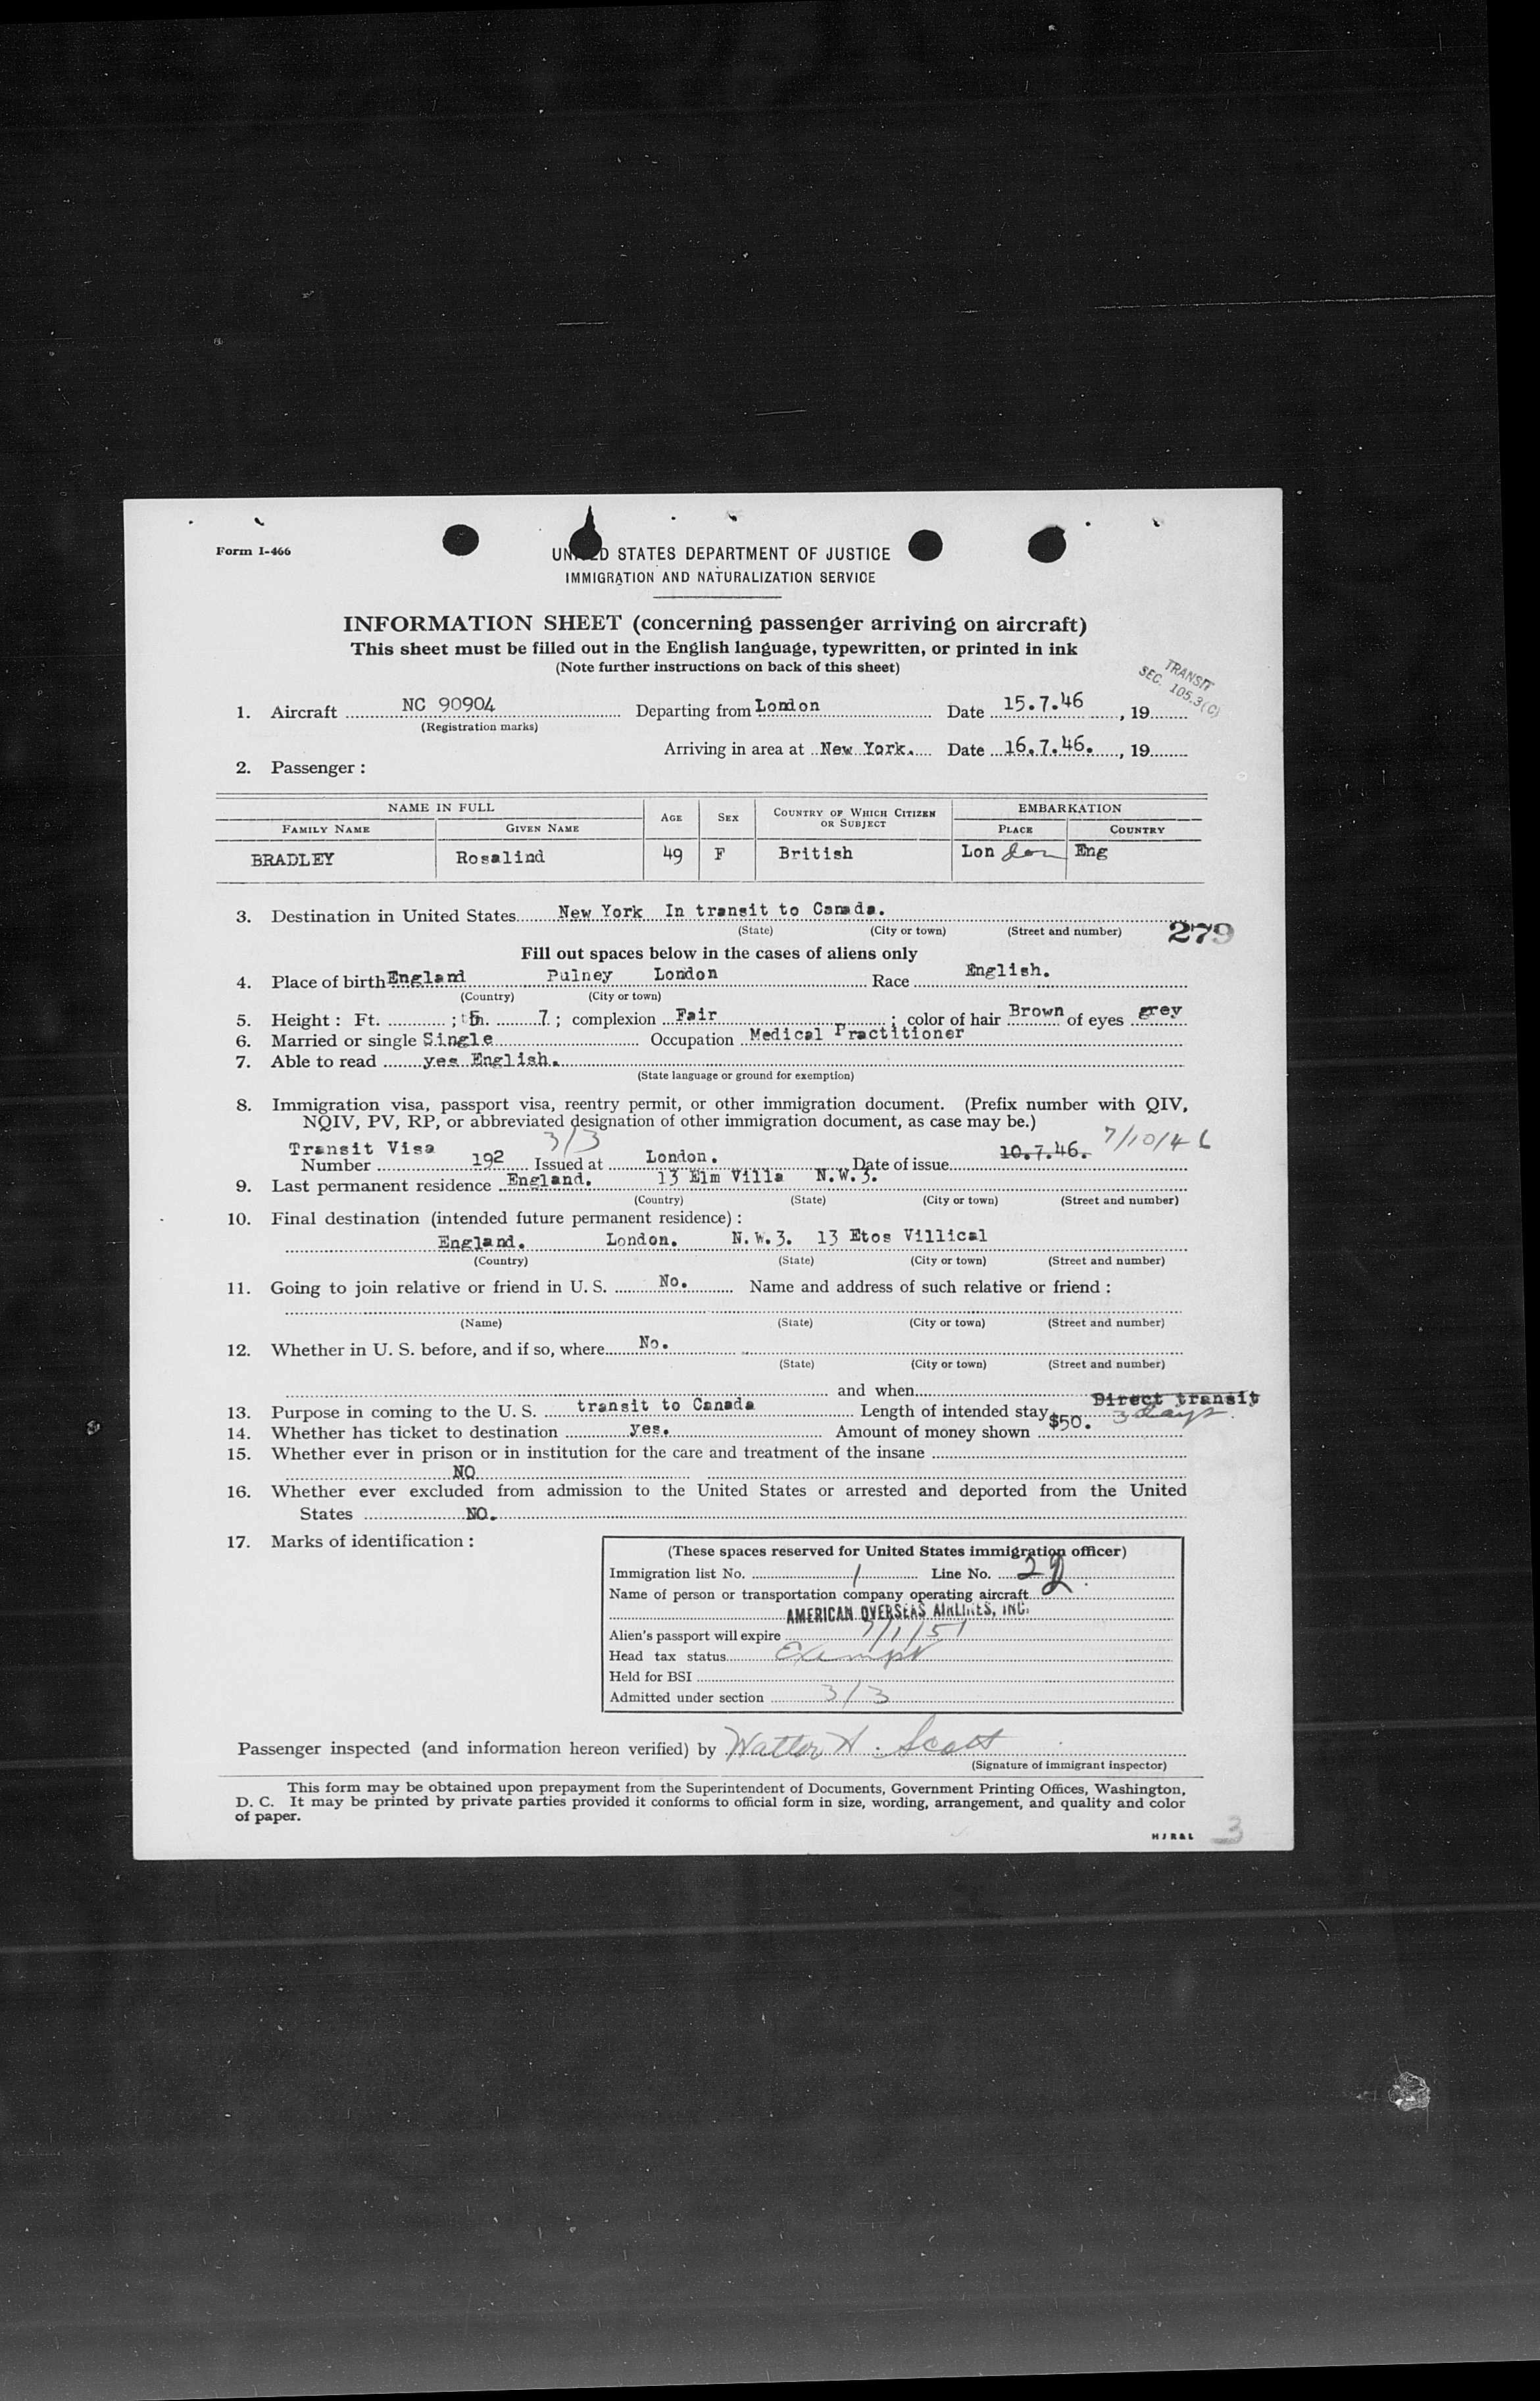 Form I-466
UNITED STATES DEPARTMENT OF JUSTICE
IMMIGRATION AND NATURALIZATION SERVICE
INFORMATION SHEET (concerning passenger arriving on aircraft)
This sheet must be filled out in the English language, typewritten, or printed in ink
(Note further instructions on back of this sheet)
TRANSIT
SEC. 105.3(C)
1. Aircraft NC 90904 Departing from London Date 15.7.46 , 19
(Registration marks)
Arriving in area at New York. Date 16.7.46. , 19
2. Passenger :
NAME IN FULL AGE SEX COUNTRY OF WHICH CITIZEN OR SUBJECT EMBARKATION
FAMILY NAME GIVEN NAME PLACE COUNTRY
BRADLEY Rosalind 49 F British London Eng
3. Destination in United States New York In transit to Canada.
(State) (City or town) (Street and number)
279
Fill out spaces below in the cases of aliens only
4. Place of birth England Pulney London Race English.
(Country) (City or town)
5. Height : Ft. ; 5 in. 7 ; complexion Fair ; color of hair Brown of eyes grey
6. Married or single Single Occupation Medical Practitioner
7. Able to read yes English.
(State language or ground for exemption)
8. Immigration visa, passport visa, reentry permit, or other immigration document. (Prefix number with QIV,
NQIV, PV, RP, or abbreviated designation of other immigration document, as case may be.)
Transit Visa 3/3 7/10/46
Number 192 Issued at London. Date of issue 10.7.46.
9. Last permanent residence England. 13 Elm Villa N.W.3.
(Country) (State) (City or town) (Street and number)
10. Final destination (intended future permanent residence) :
England. London. N.W.3. 13 Etos Villical
(Country) (State) (City or town) (Street and number)
11. Going to join relative or friend in U. S. No. Name and address of such relative or friend :
(Name) (State) (City or town) (Street and number)
12. Whether in U. S. before, and if so, where No.
(State) (City or town) (Street and number)
and when
Direct transit
13. Purpose in coming to the U. S. transit to Canada Length of intended stay 3 days
14. Whether has ticket to destination yes. Amount of money shown $50.
15. Whether ever in prison or in institution for the care and treatment of the insane
NO
16. Whether ever excluded from admission to the United States or arrested and deported from the United
States NO.
17. Marks of identification :
(These spaces reserved for United States immigration officer)
Immigration list No. 1 Line No. 2
Name of person or transportation company operating aircraft
AMERICAN OVERSEAS AIRLINES, INC.
Alien's passport will expire 7/1/51
Head tax status Exempt
Held for BSI
Admitted under section 3/3
Passenger inspected (and information hereon verified) by Walter H. Scott
(Signature of immigrant inspector)
This form may be obtained upon prepayment from the Superintendent of Documents, Government Printing Offices, Washington,
D. C. It may be printed by private parties provided it conforms to official form in size, wording, arrangement, and quality and color
of paper.
H J R & L
3